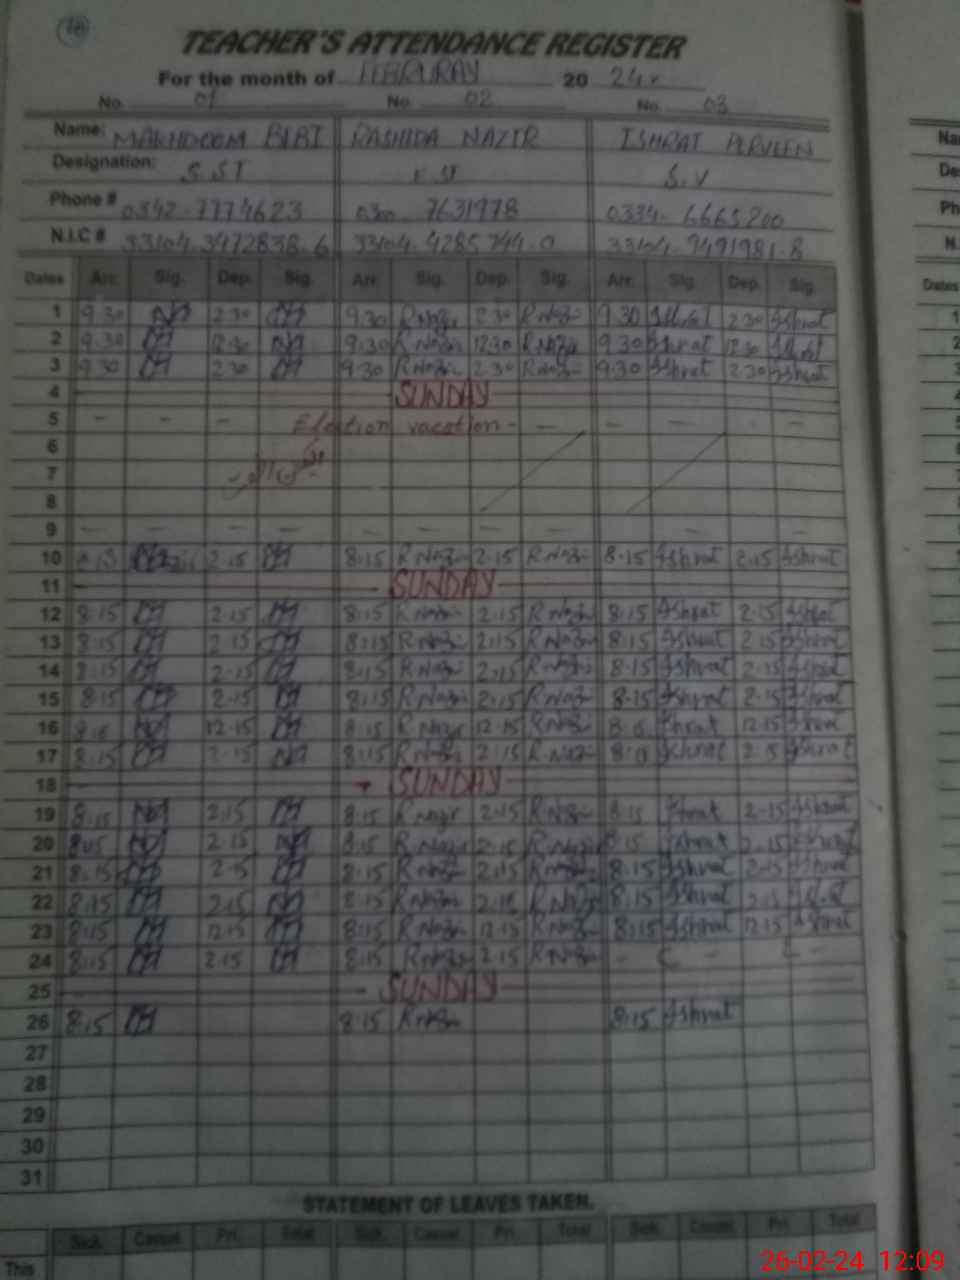 10
TEACHER'S ATTENDANCE REGISTER
For the month of FEBRURAY 20 24
No. 01 No 02 No. 03
Name: MAKHDOOM BIBI RASHIDA NAZIR ISHRAT PERVEEN
Designation: S.ST E.ST S.V
Phone # 0342-7774623 0300-7631978 0334-6665200
N.I.C # 33104-3472838-6 33104-4285744-0 33104-9491981-8
Dates Arr. Sig. Dep. Sig. Arr. Sig. Dep. Sig. Arr. Sig. Dep. Sig.
1 9.30 2.30 9.30 R Nazir 2.30 R Nazir 9.30 Ishrat 2.30 Ishrat
2 9.30 12.30 9.30 R Nazir 12.30 R Nazir 9.30 Ishrat 12.30 Ishrat
3 9.30 2.30 9.30 R Nazir 2.30 R Nazir 9.30 Ishrat 2.30 Ishrat
4 SUNDAY
5 - - - Election vacation - - - - - -
6
7
8
9 - - - - - - - - - -
10 2.15 8.15 R Nazir 2.15 R Nazir 8.15 Ishrat 2.15 Ishrat
11 SUNDAY
12 8.15 2.15 8.15 R Nazir 2.15 R Nazir 8.15 Ishrat 2.15 Ishrat
13 8.15 2.15 8.15 R Nazir 2.15 R Nazir 8.15 Ishrat 2.15 Ishrat
14 8.15 2.15 8.15 R Nazir 2.15 R Nazir 8.15 Ishrat 2.15 Ishrat
15 8.15 2.15 8.15 R Nazir 2.15 R Nazir 8.15 Ishrat 2.15 Ishrat
16 8.15 12.15 8.15 R Nazir 12.15 R Nazir Ishrat 12.15 Ishrat
17 8.15 2.15 8.15 R Nazir 2.15 R Nazir Ishrat 2.15 Ishrat
18 SUNDAY
19 8.15 2.15 8.15 R Nazir 2.15 R Nazir 8.15 Ishrat 2.15 Ishrat
20 8.15 2.15 8.15 R Nazir 2.15 R Nazir 8.15 Ishrat 2.15 Ishrat
21 8.15 2.15 8.15 R Nazir 2.15 R Nazir 8.15 Ishrat 2.15 Ishrat
22 8.15 2.15 8.15 R Nazir 2.15 R Nazir 8.15 Ishrat 2.15 Ishrat
23 8.15 12.15 8.15 R Nazir 12.15 R Nazir 8.15 Ishrat 12.15 Ishrat
24 8.15 2.15 8.15 R Nazir 2.15 R Nazir - C - L -
25 SUNDAY
26 8.15 8.15 R Nazir 8.15 Ishrat
27
28
29
30
31
STATEMENT OF LEAVES TAKEN.
Sick. Casual. Pri. Total Sick. Casual. Pri. Total Sick. Casual. Pri. Total
This
26-02-24 12:09